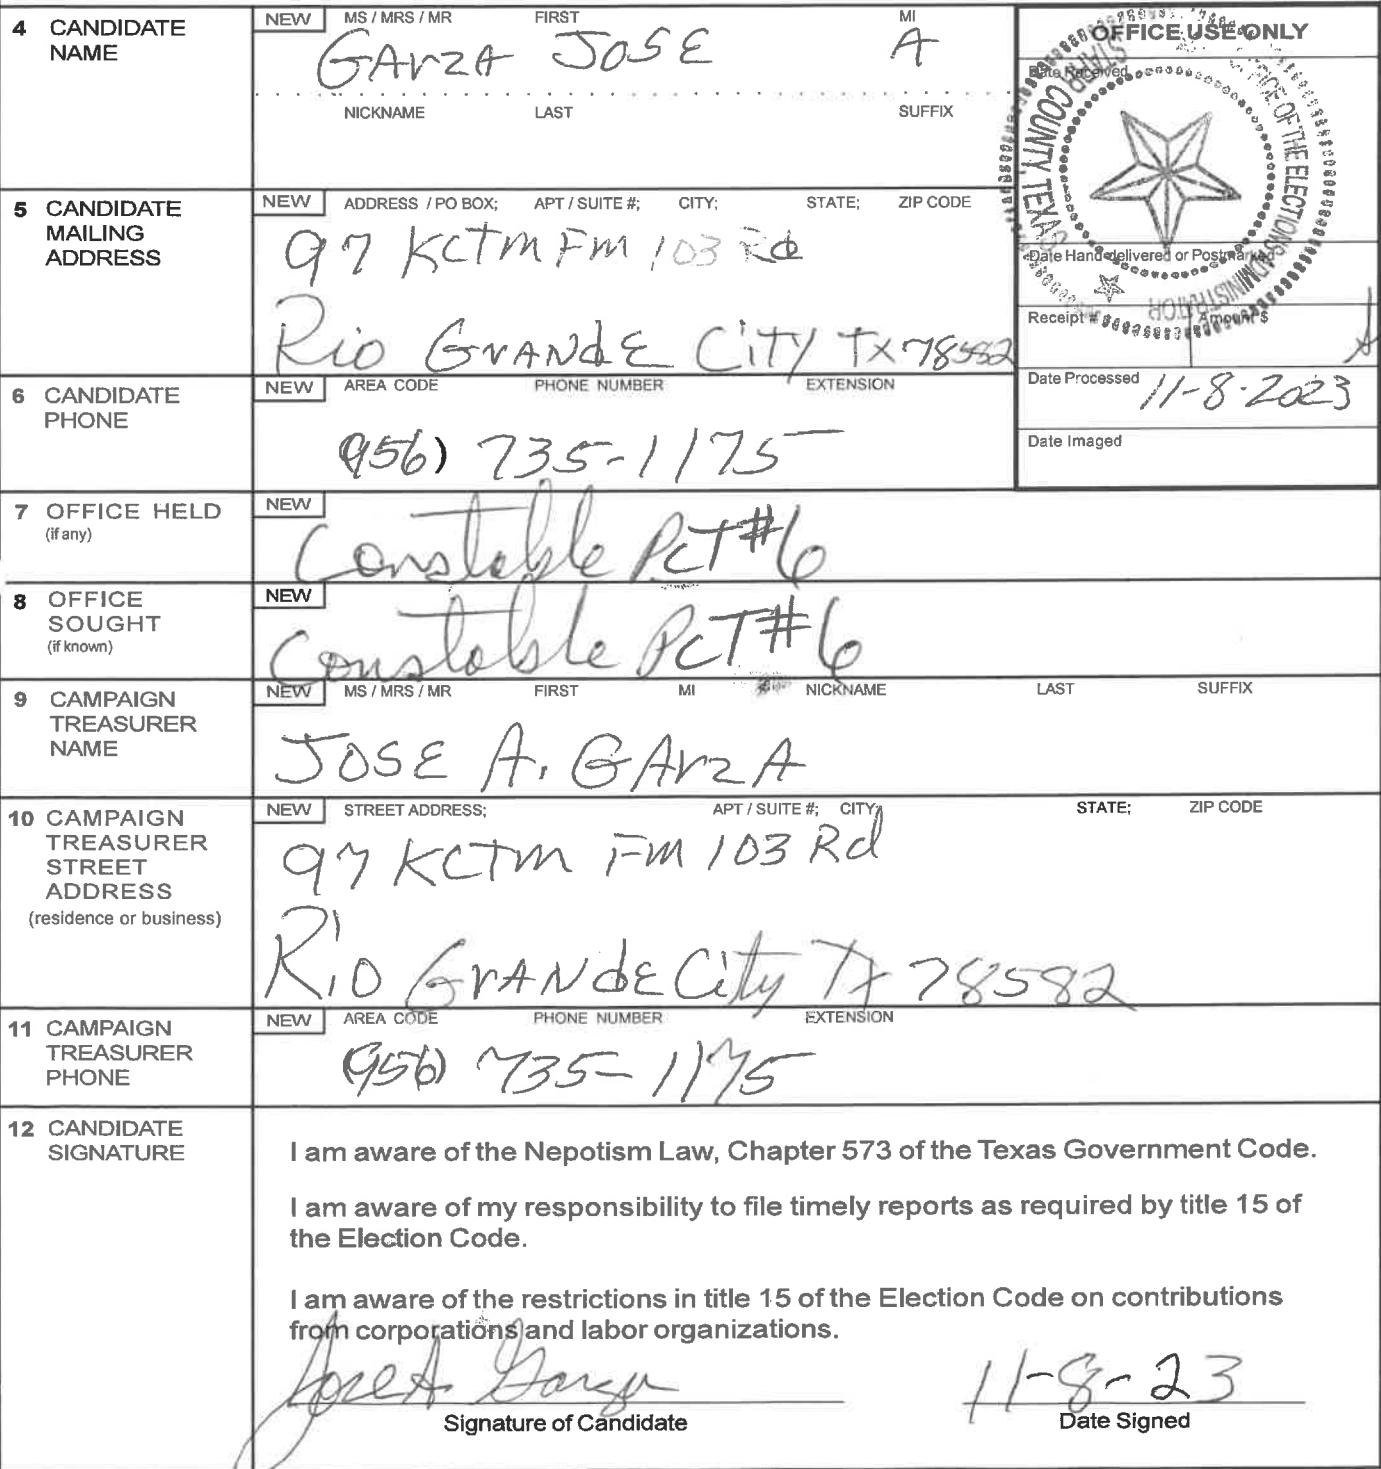 4 CANDIDATE NAME
NEW MS / MRS / MR FIRST MI
GARZA JOSE A
NICKNAME LAST SUFFIX
OFFICE USE ONLY
Date Received
STARR COUNTY, TEXAS
OFFICE OF THE ELECTIONS ADMINISTRATOR
Date Hand-delivered or Postmarked
Receipt # Amount $
Date Processed 11-8-2023
Date Imaged
5 CANDIDATE MAILING ADDRESS
NEW ADDRESS / PO BOX; APT / SUITE #; CITY; STATE; ZIP CODE
97 KCTM FM 103 Rd
Rio GRANdE CiTY TX 78582
6 CANDIDATE PHONE
NEW AREA CODE PHONE NUMBER EXTENSION
(956) 735-1175
7 OFFICE HELD (if any)
NEW
Constable PCT #6
8 OFFICE SOUGHT (if known)
NEW
Constable PCT #6
9 CAMPAIGN TREASURER NAME
NEW MS / MRS / MR FIRST MI NICKNAME LAST SUFFIX
JOSE A. GARZA
10 CAMPAIGN TREASURER STREET ADDRESS (residence or business)
NEW STREET ADDRESS; APT / SUITE #; CITY; STATE; ZIP CODE
97 KCTM FM 103 Rd
RiO GRANdE City TX 78582
11 CAMPAIGN TREASURER PHONE
NEW AREA CODE PHONE NUMBER EXTENSION
(956) 735-1175
12 CANDIDATE SIGNATURE
I am aware of the Nepotism Law, Chapter 573 of the Texas Government Code.
I am aware of my responsibility to file timely reports as required by title 15 of
the Election Code.
I am aware of the restrictions in title 15 of the Election Code on contributions
from corporations and labor organizations.
Jose A Garza 11-8-23
Signature of Candidate Date Signed